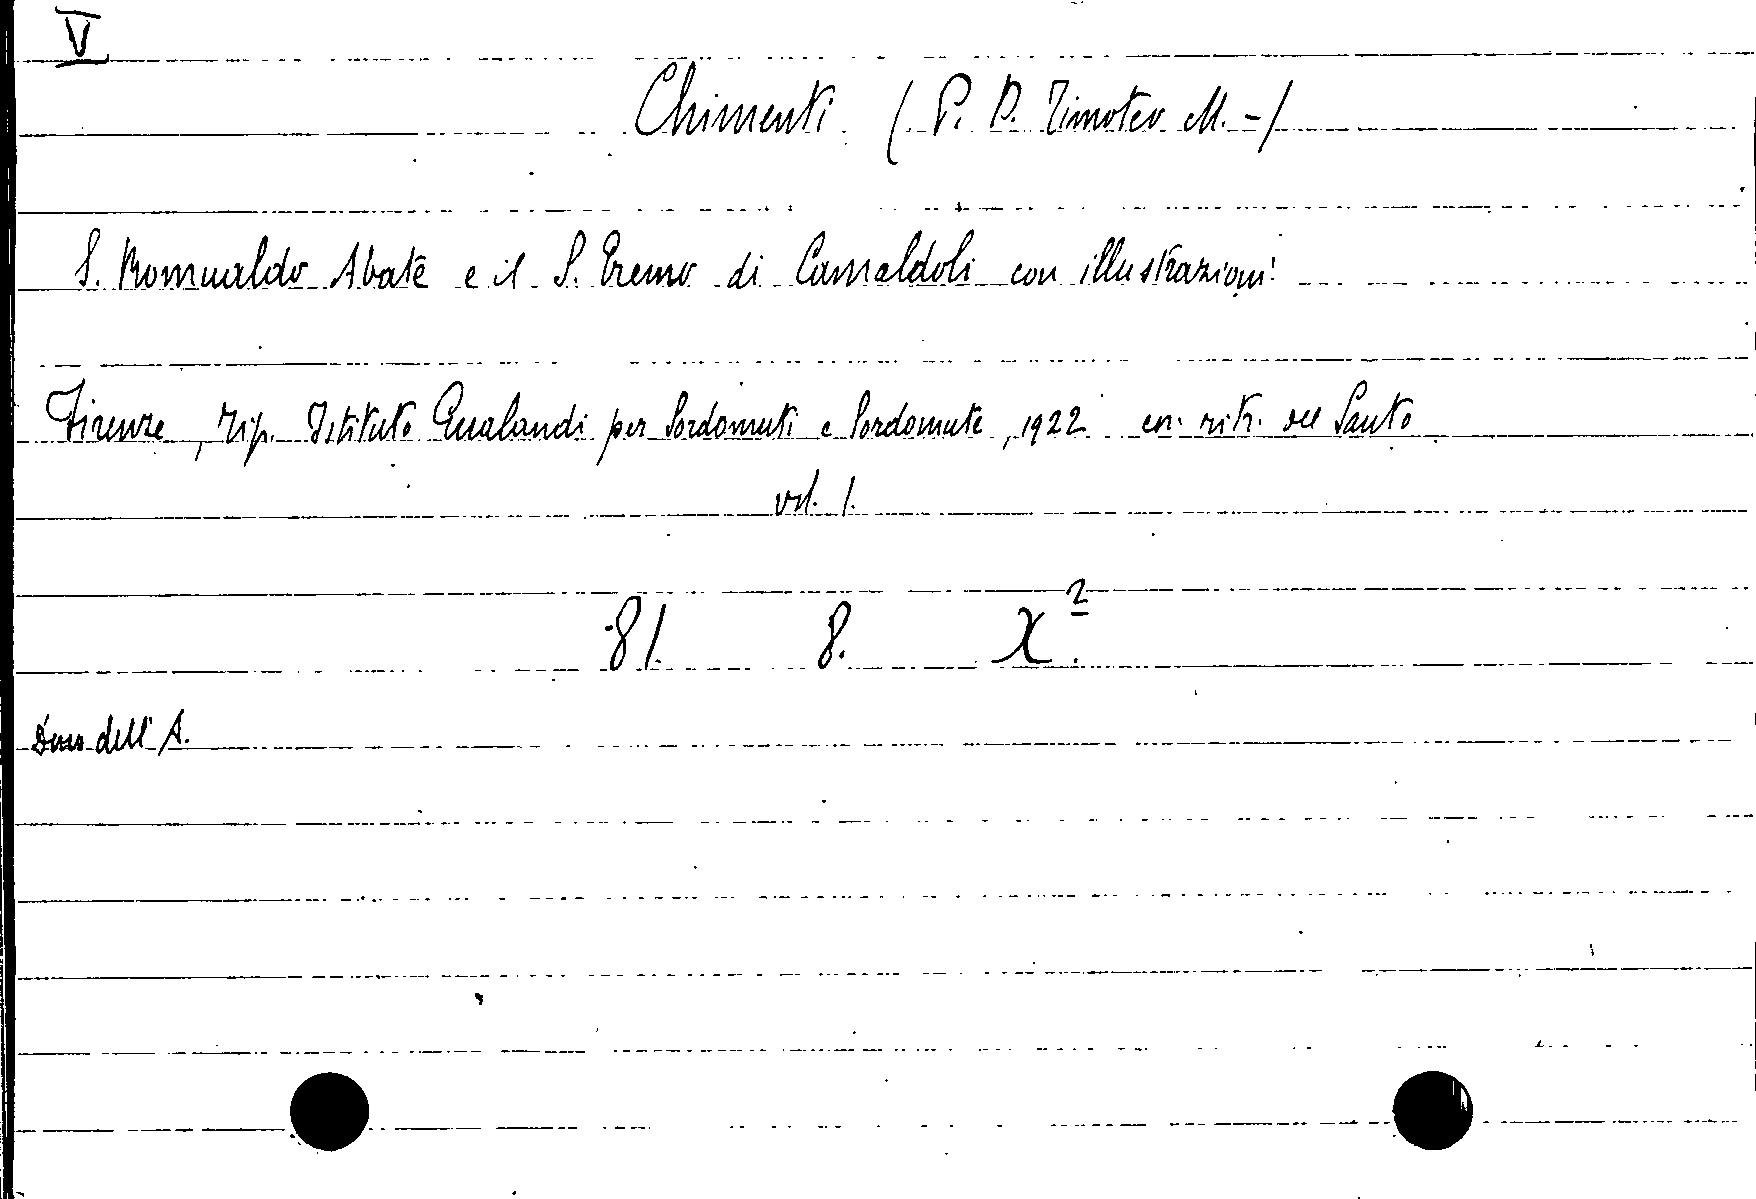 V
Chimenti (P. D. Timoteo M. -)
S. Romualdo Abate e il S. Eremo di Camaldoli con illustrazioni
Firenze, Tip. Istituto Gualandi per Sordomuti e Sordomute, 1922 con ritr. del Santo
vol. 1.
81. 8. X².
Dono dell'A.